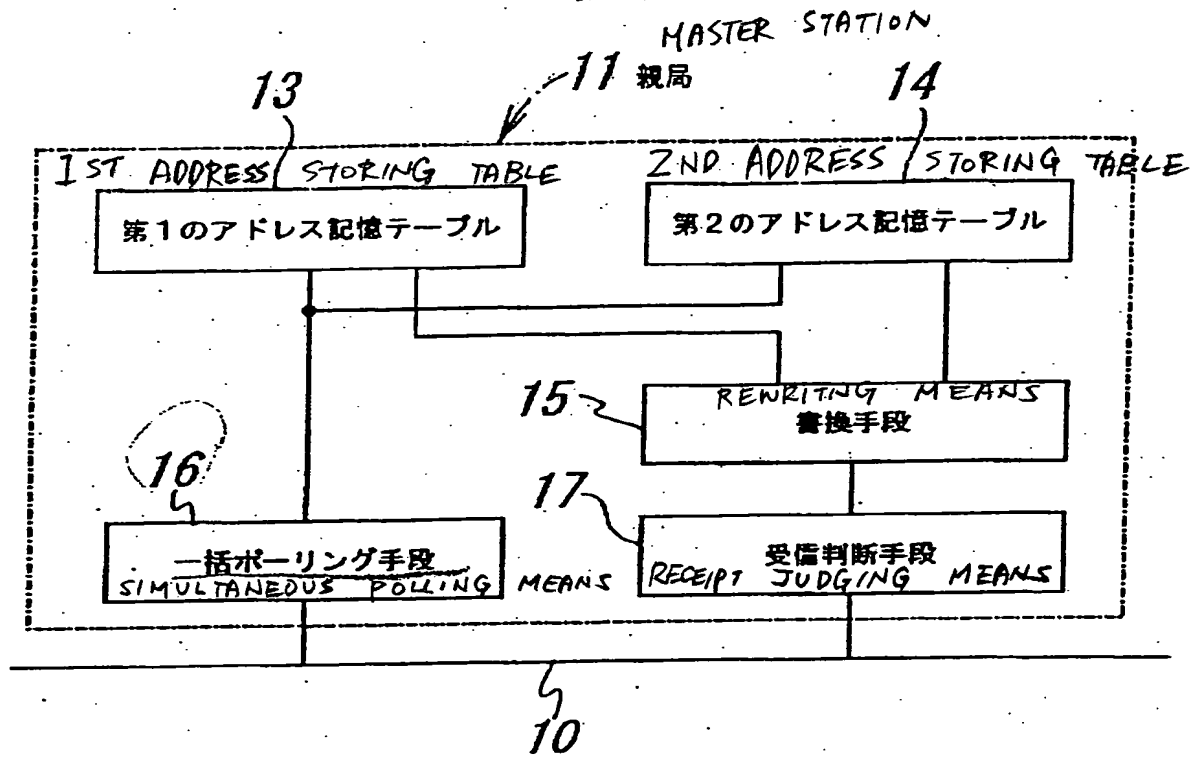 MASTER STATION
13
11 親局
14
1ST ADDRESS STORING TABLE
2ND ADDRESS STORING TABLE
第1のアドレス記憶テーブル
第2のアドレス記憶テーブル
15
REWRITNG MEANS
書換手段
16
17
一括ポーリング手段
受信判断手段
SIMULTANEOUS POLLING MEANS
RECEIPT JUDGING MEANS
10